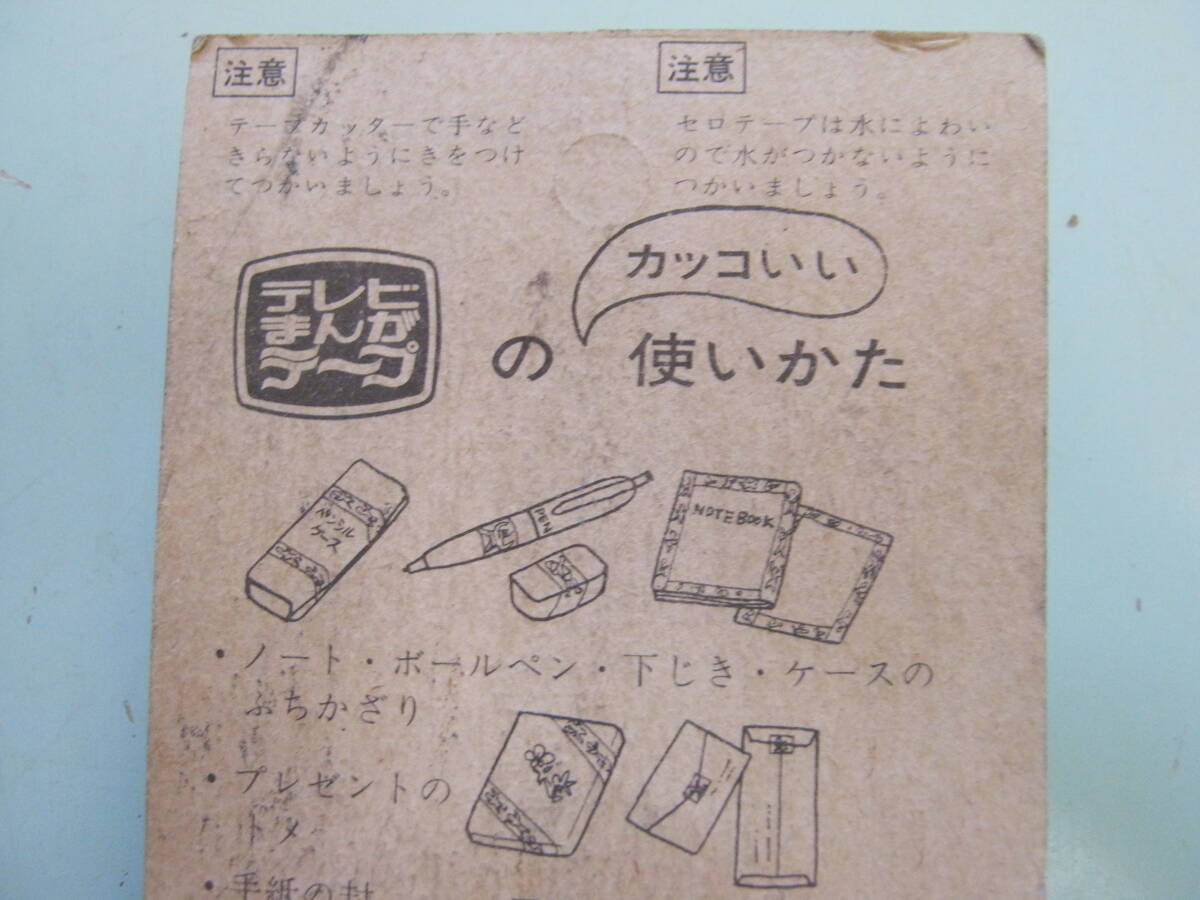 注意
テープカッターで手など
きらないようにきをつけ
てつかいましょう。
注意
セロテープは水によわい
ので水がつかないように
つかいましょう。
テレビ
まんが
テープ
の
カッコいい
使いかた
ペンシル
ケース
PEN
NOTEBOOK
・ノート・ボールペン・下じき・ケースの
ふちかざり
・プレゼントの
トメ
・手紙の封